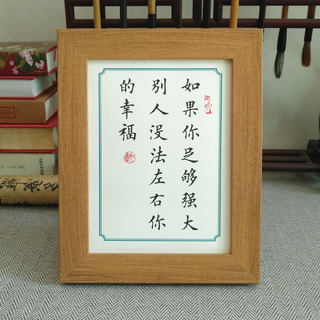 如果你足够强大
别人没法左右你
的幸福